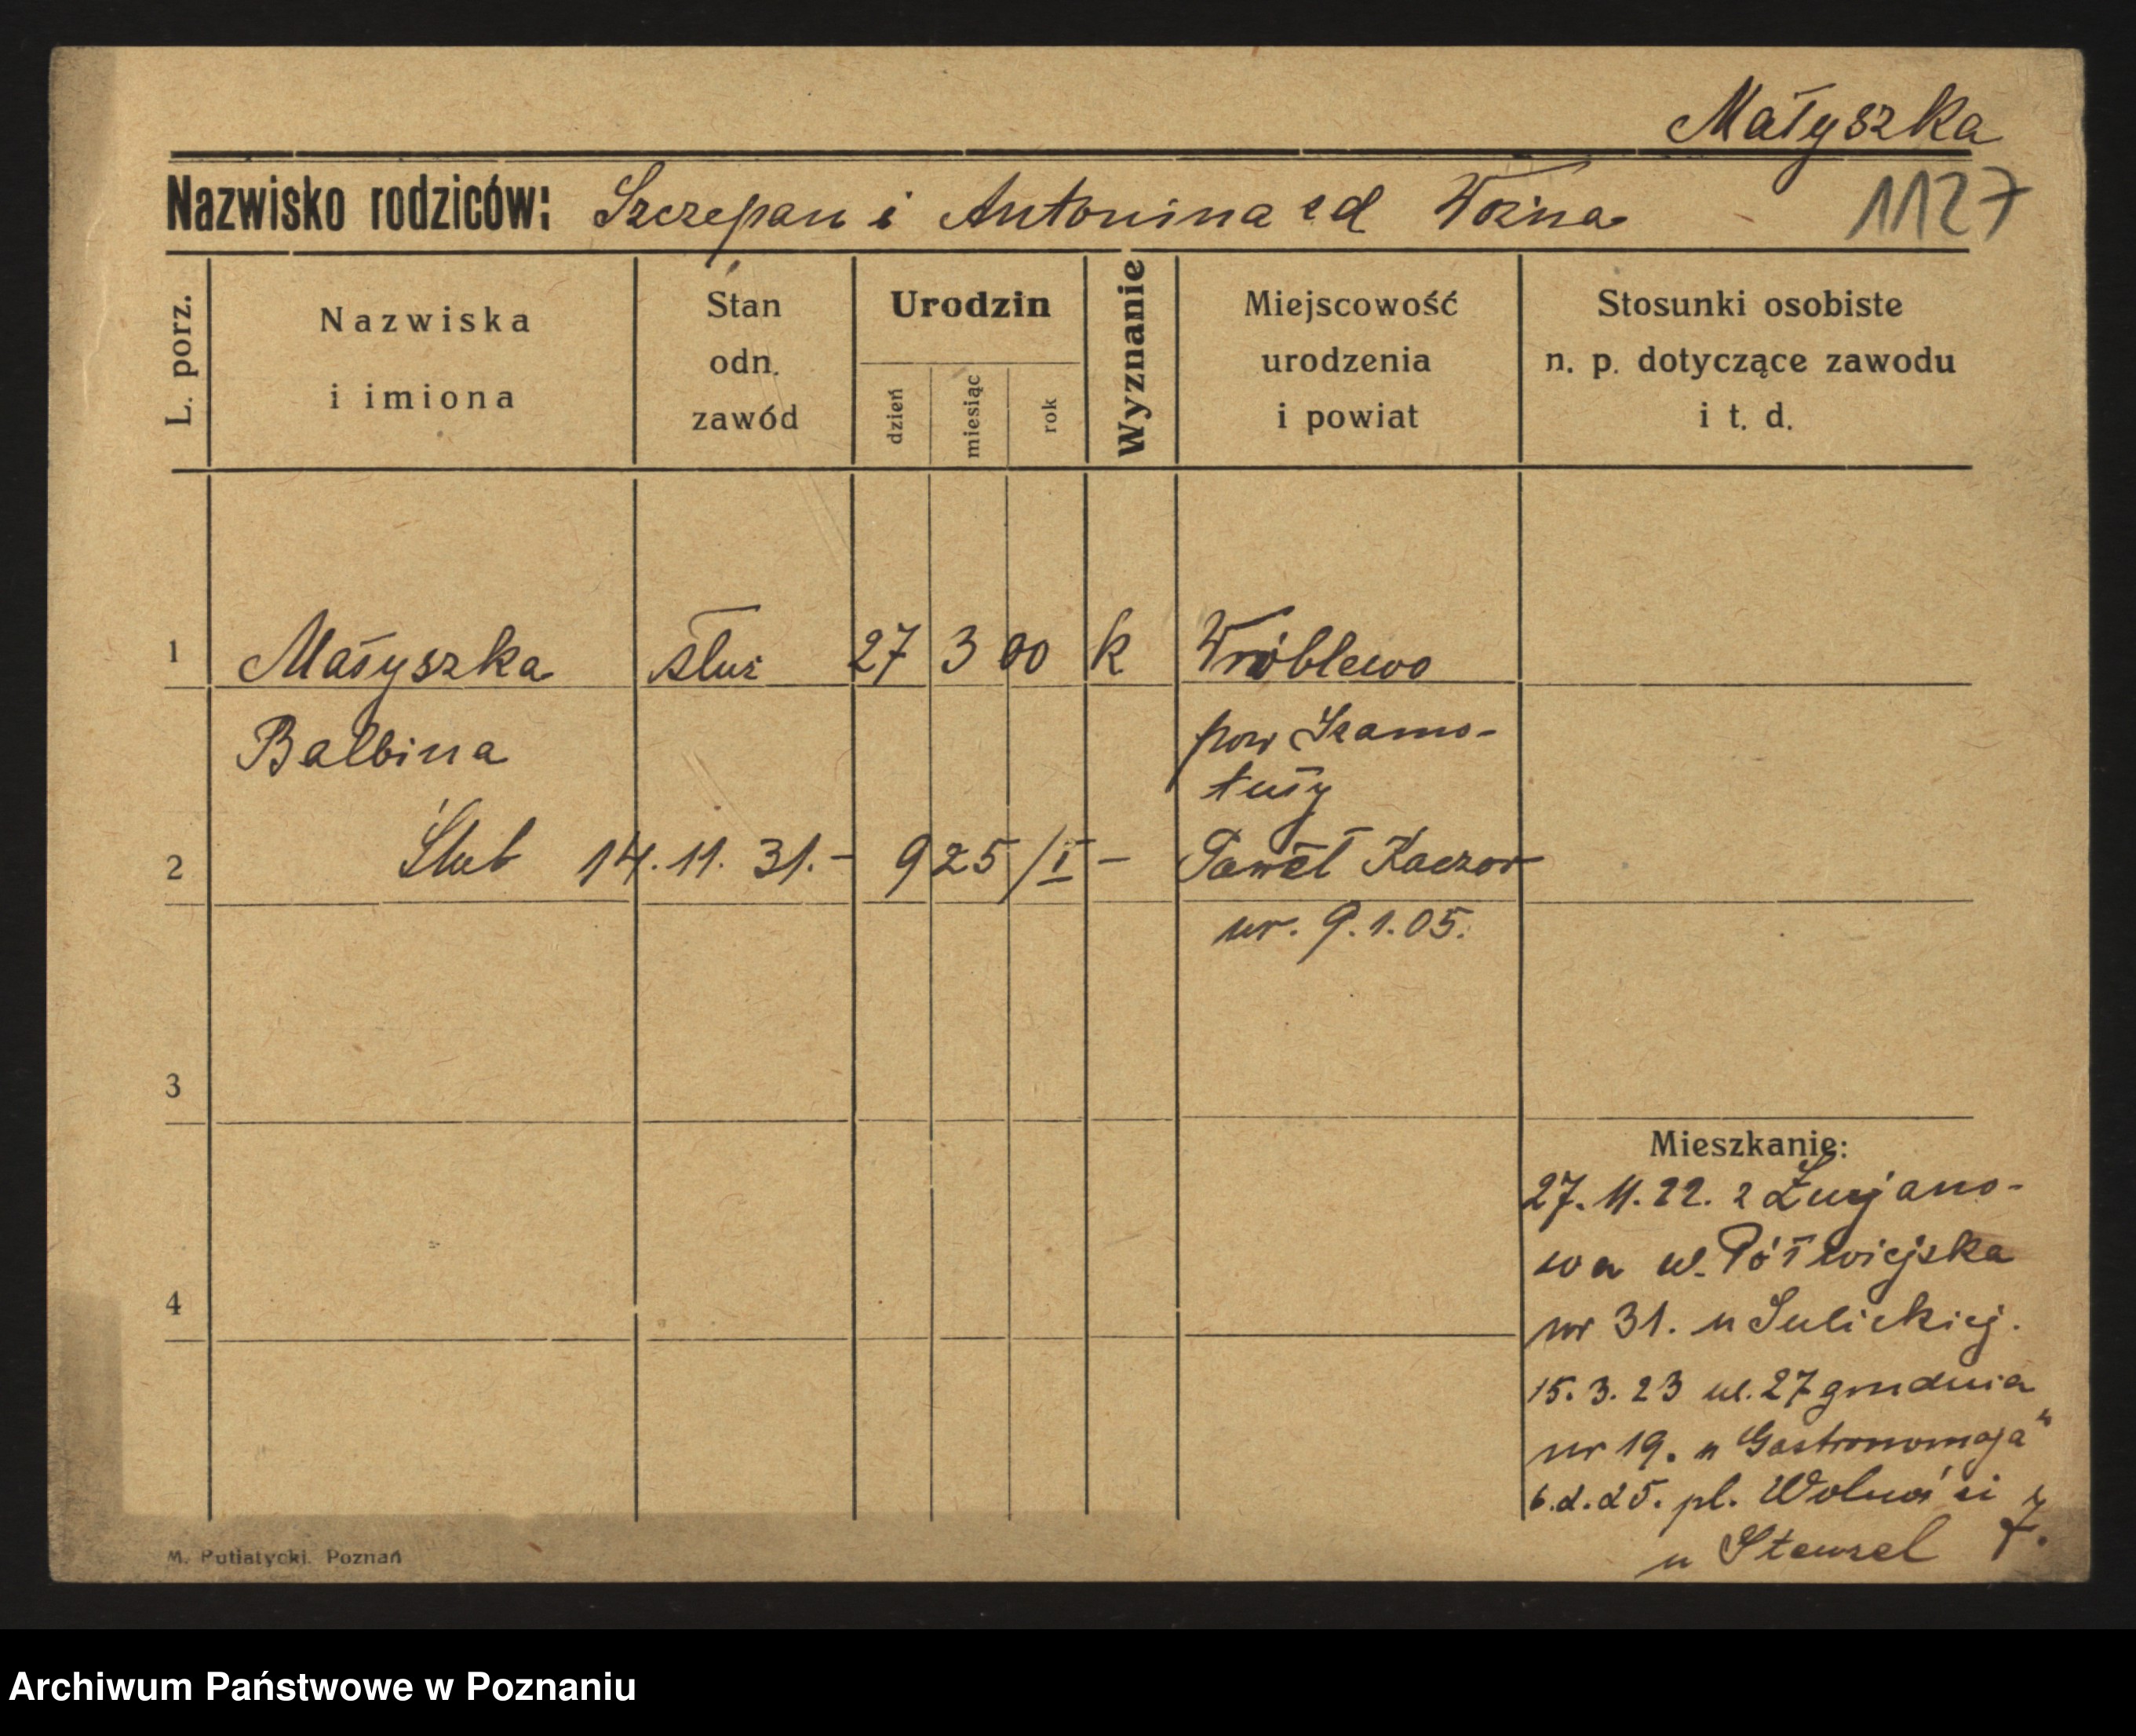 Małyszka
Nazwisko rodziców: Szczepan i Antonina zd Woźna
1127
L. porz.
Nazwiska
i imiona
Stan
odn.
zawód
Urodzin
dzień
miesiąc
rok
Wyznanie
Miejscowość
urodzenia
i powiat
Stosunki osobiste
n. p. dotyczące zawodu
i t. d.
1 Małyszka służ 27 3 00 k Wróblewo
Balbina pow Szamo-
tuły
2 Ślub 14.11.31.- 925/I - Paweł Kaczor
ur. 9.1.05.
3
4
Mieszkanie:
27.11.22. z
wa ul. Półwiejska
nr 31. u Sulickiej.
15.3.23 ul. 27 grudnia
nr 19. "Gastronomja"
6.2.25. pl. Wolności
7.
u Stenzel
M. Putiatycki. Poznań
Archiwum Państwowe w Poznaniu